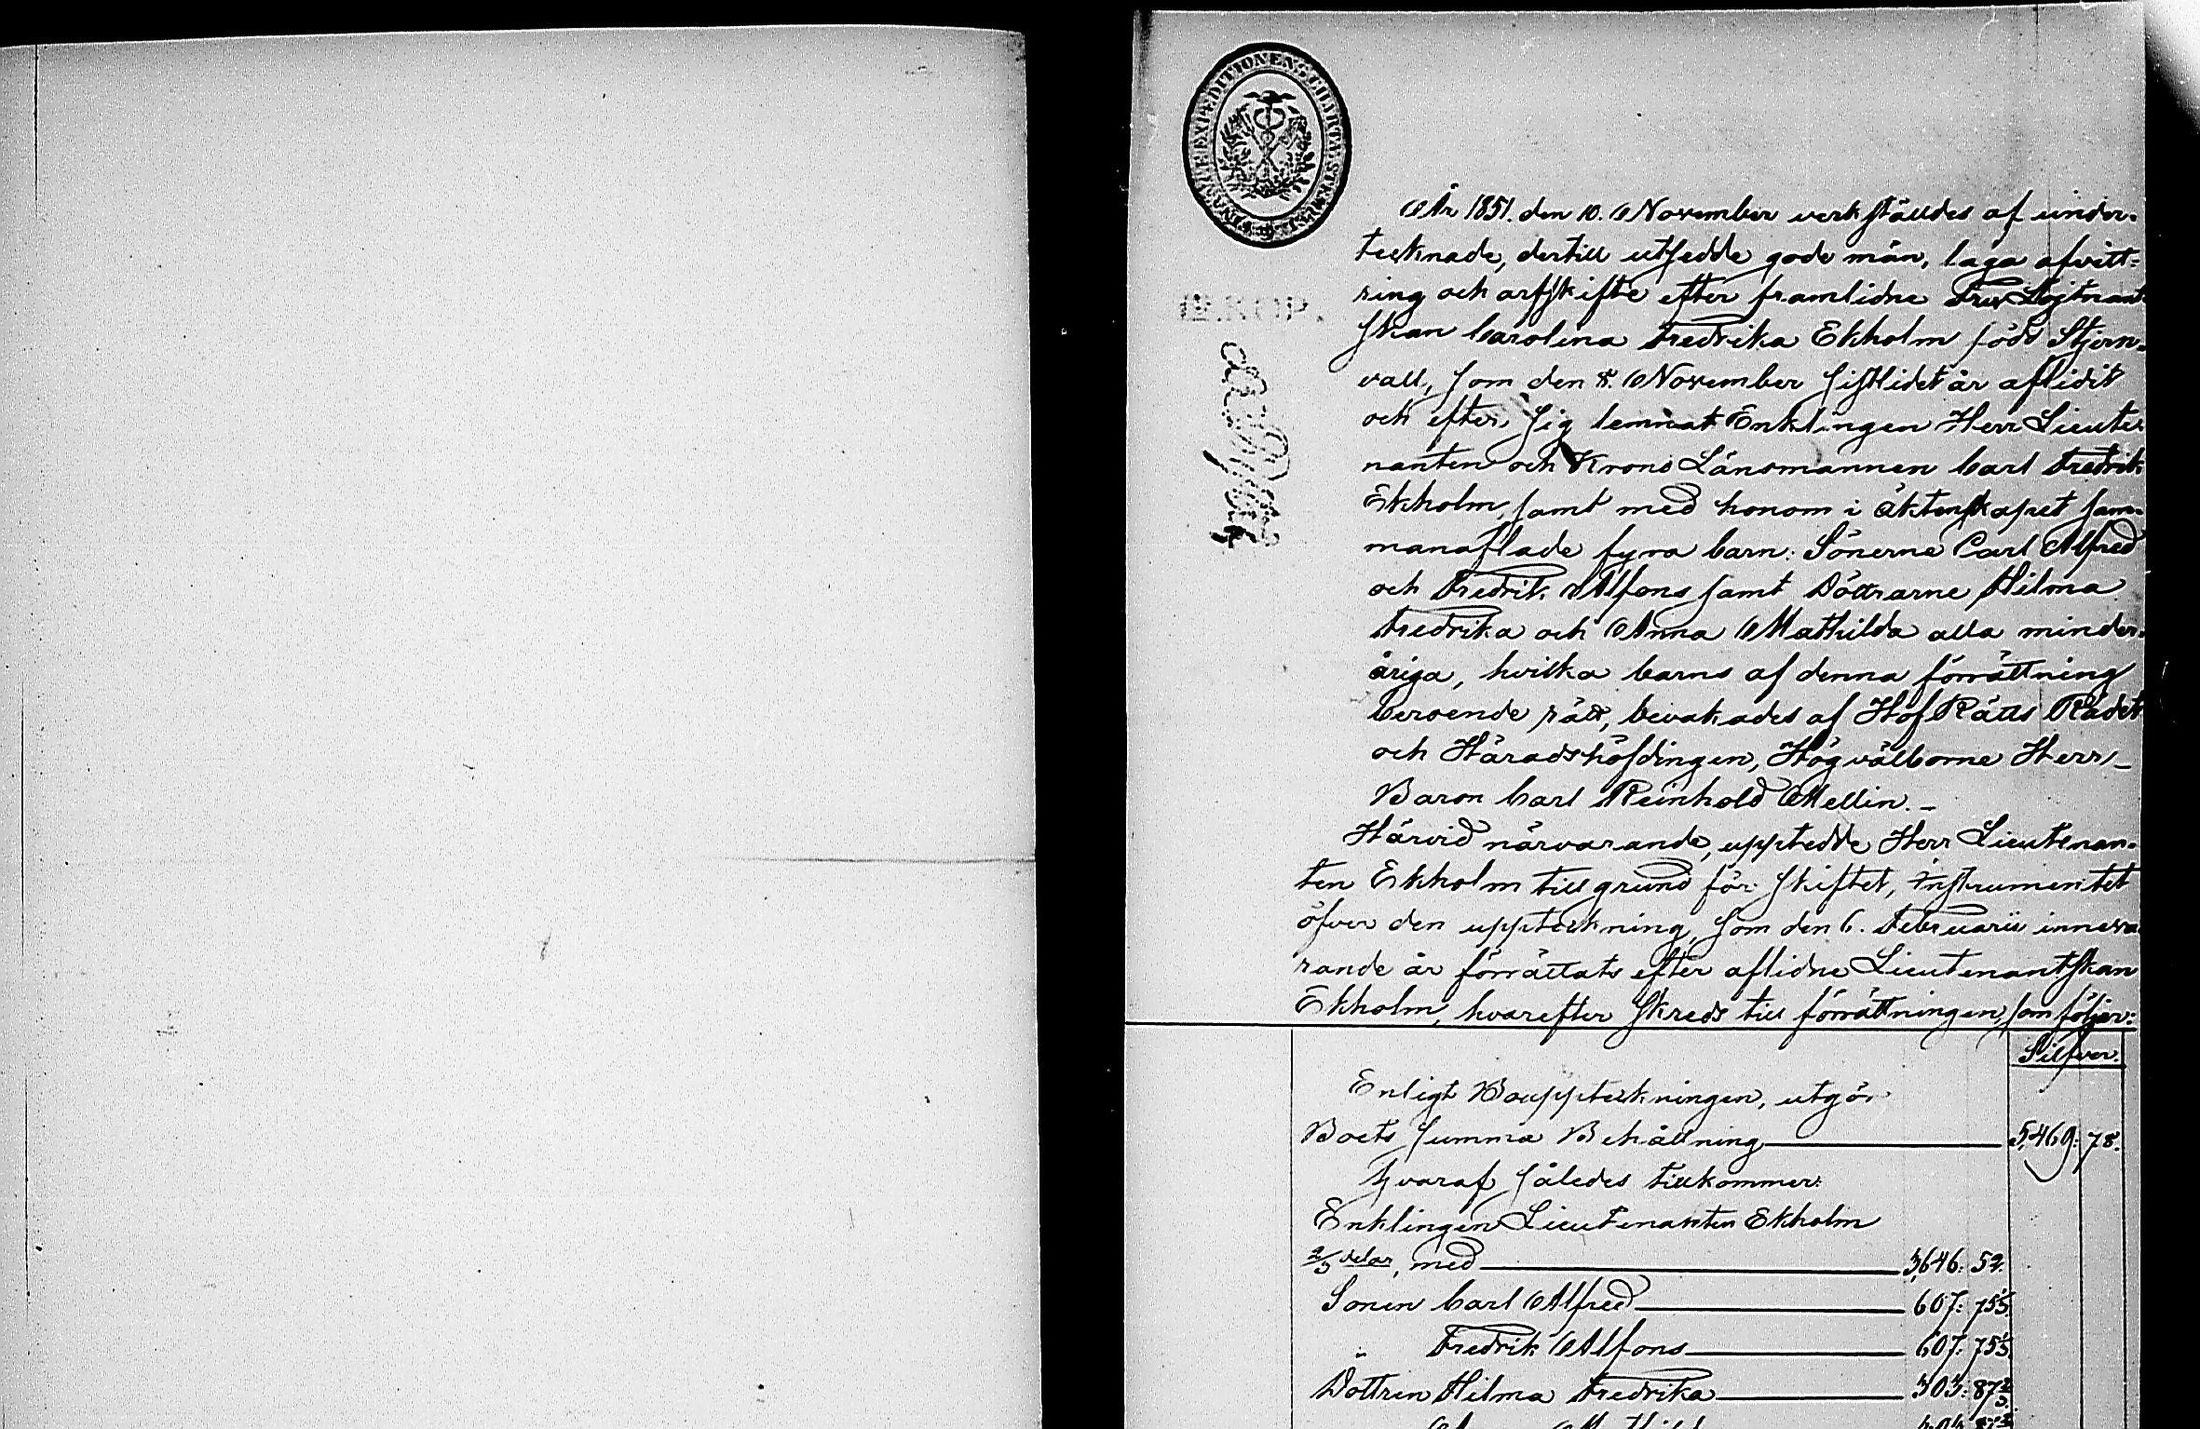 FINANCE EXPEDITIONENS CHARTÆ STEMPEL
År 1851. den 10. November verkställdes af under-
tecknade, dertill utsedde gode män, laga afvitt-
ring och arfskifte efter framlidne Fru Löjtnant
skan Carolina Fredrika Ekholm född Stjern-
vall, som den 8. November sistlidet år aflidit
och efter sig lemnat Enklingen Herr Lieute-
nanten och Krono Länsmannen Carl Fredrik
Ekholm, samt med honom i äktenskapet sam-
manaflade fyra barn: Sönerne Carl Alfred
och Fredrik Alfons samt Döttrarne Hilma
Fredrika och Anna Mathilda alla minder-
åriga, hvilka barns af denna förrättning
beroende rätt, bevakades af HofRätts Rådet
och Häradshöfdingen, Högvälborne Herr
Baron Carl Reinhold Mellin.
Härvid närvarande, upptedde Herr Lieutenan-
ten Ekholm till grund för skiftet, instrumentet
öfver den uppteckning, som den 6. Februarii inneva
rande år förrättats efter aflidne Lieutenantskan
Ekholm, hvarefter skreds till förrättningen, som följer:
Silfver.
Enligt Bouppteckningen, utgör
Boets summa Behållning 5,469: 78.
hvaraf således tillkommer:
Enklingen Lieutenanten Ekholm
2/3 delar, med 3,646: 52.
Sonen Carl Alfred 607: 75 1/3.
" Fredrik Alfons 607: 75 1/3.
Dottren Hilma Fredrika 303: 87 2/3.